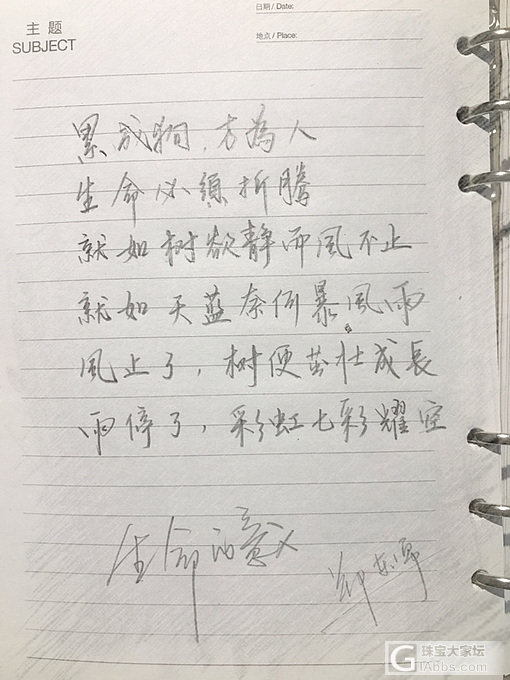 日期 / Date:
主题
SUBJECT
地点 / Place:
累成狗，方為人
生命必须折腾
就如树欲静而風不止
就如天蓝奈何暴風雨
風止了，树便茁壮成長
雨停了，彩虹七彩耀空
生命的意义
珠宝大家坛
GIAbbs.com